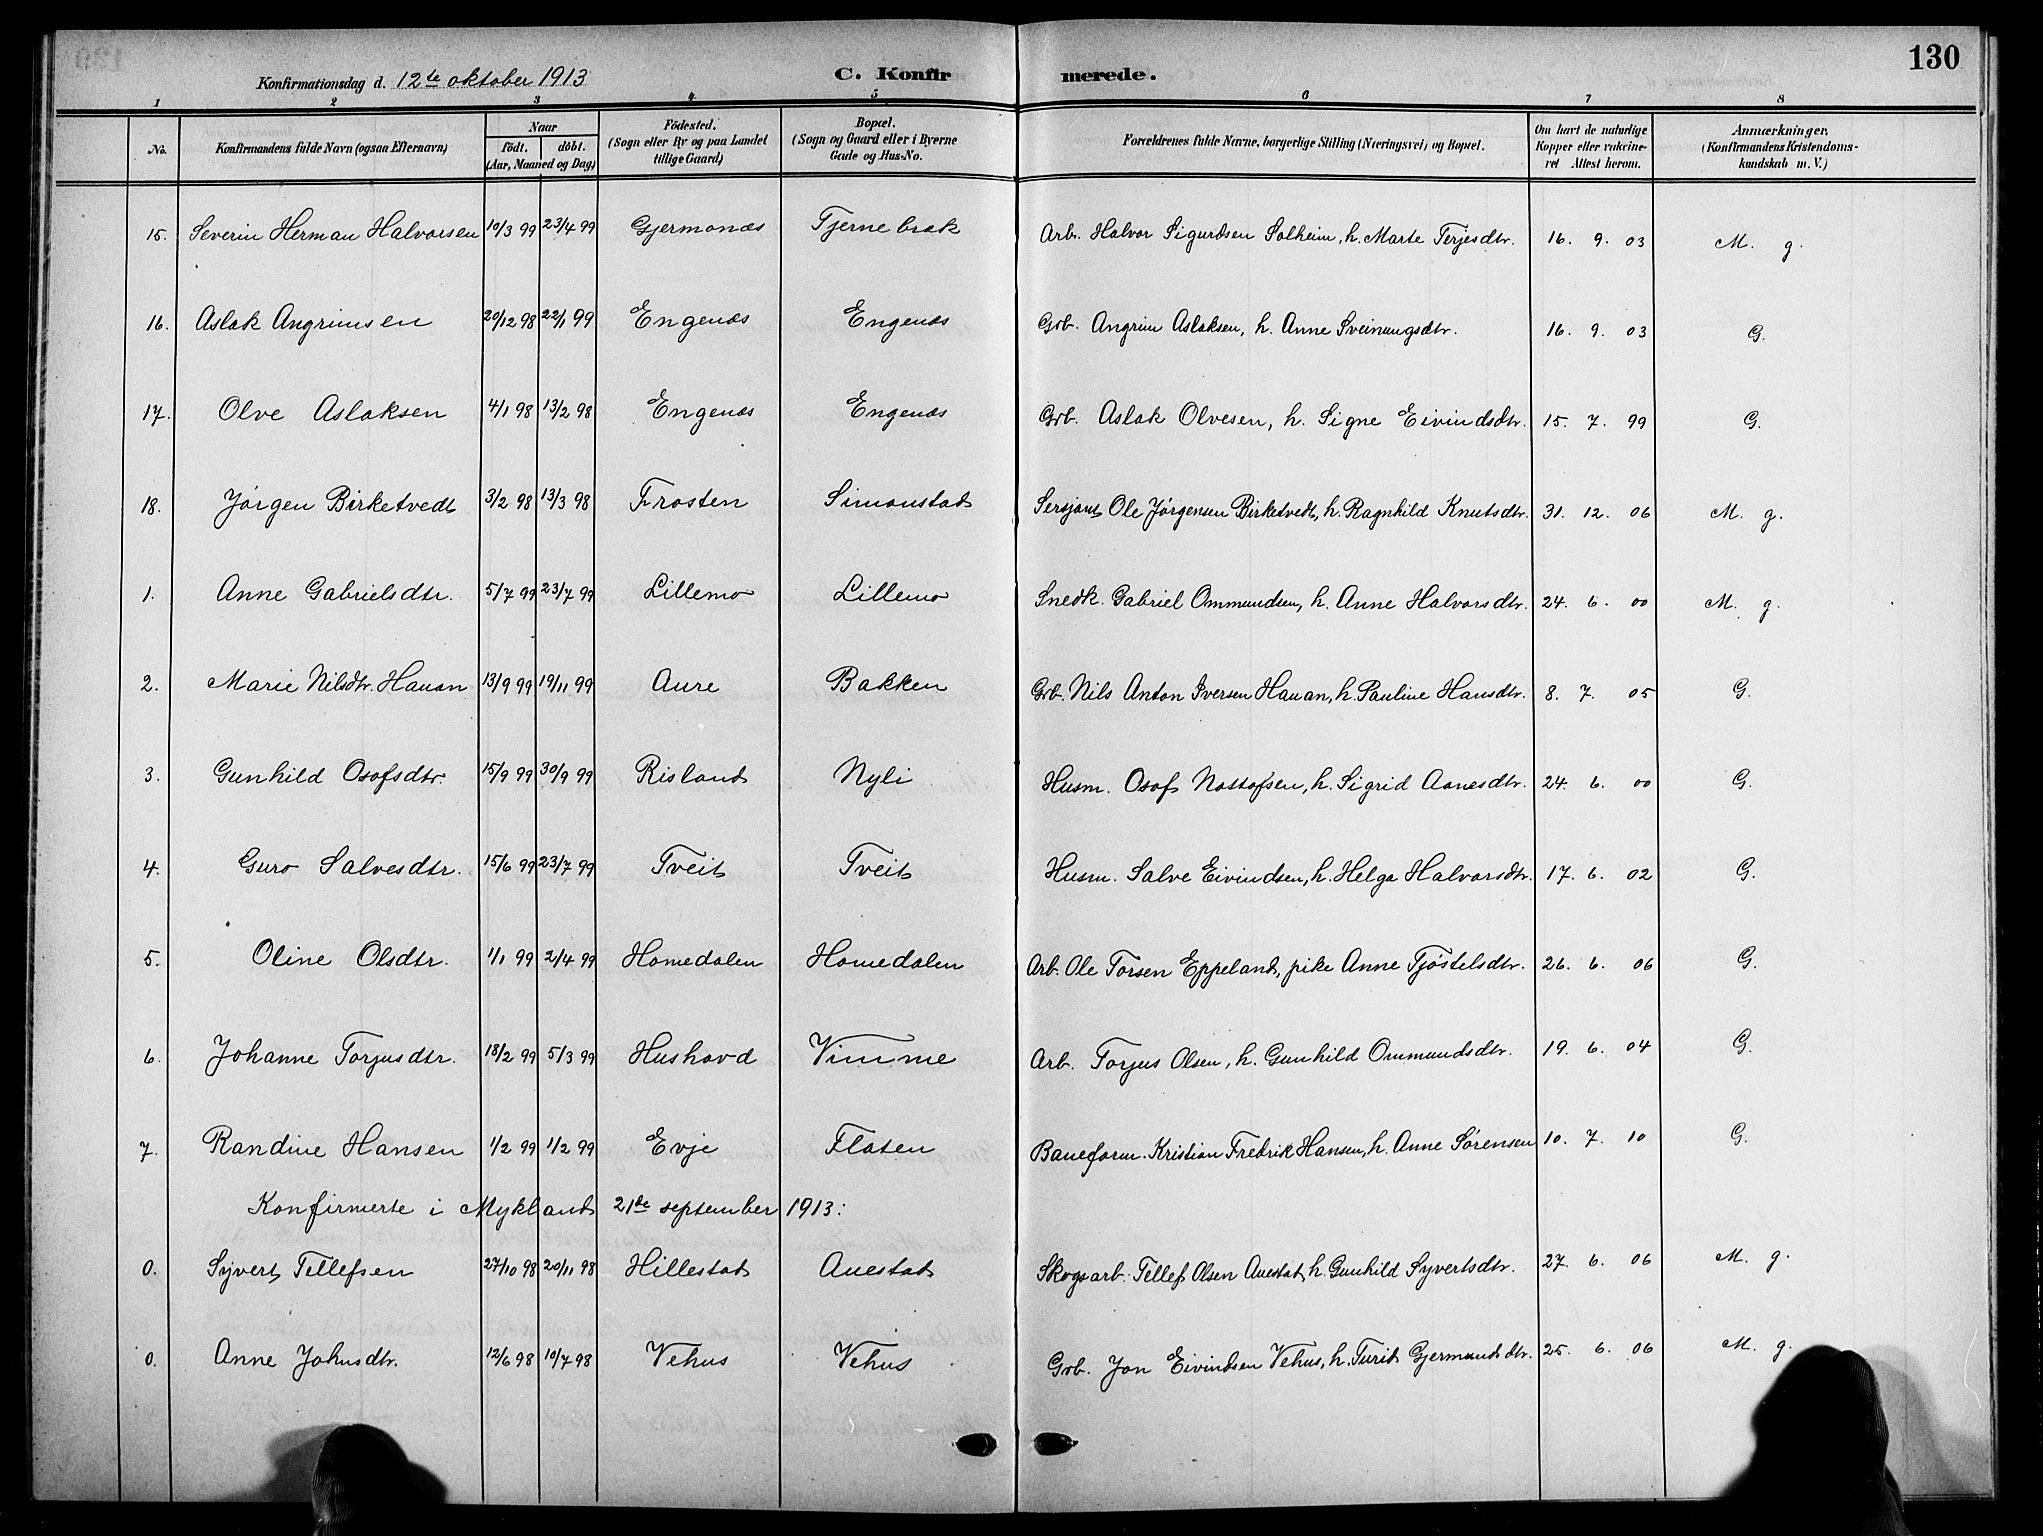 130
Konfirmationsdag d. 12te oktober 1913 C. Konfirmerede.
1 2 3 4 5 6 7 8
No. Konfirmandens fulde Navn (ogsaa Efternavn) Naar födt. döbt. (Aar, Maaned og Dag) Födested. (Sogn eller By og paa Landet tillige Gaard) Bopæl. (Sogn og Gaard eller i Byerne Gade og Hus-No. Forældrenes fulde Navne, borgerlige Stilling (Næringsvei) og Bopæl. Om havt de naturlige Kopper eller vakcineret Attest herom. Anmærkninger, (Konfirmandens Kristendomskundskab m. V.)
15. Severin Herman Halvorsen 10/3 99 23/4 99 Gjermonæs Tjernebrak Arb. Halvor Sigurdsen Solheim, h. Marte Terjesdtr. 16. 9. 03 M. g.
16. Aslak Angrimsen 20/12 98 22/1 99 Engenæs Engenæs Grb. Angrim Aslaksen, h. Anne Sveinungsdtr. 16. 9. 03 G.
17. Olve Aslaksen 4/1 98 13/2 98 Engenæs Engenæs Grb. Aslak Olvesen, h. Signe Eivindsdtr. 15. 7. 99 G.
18. Jørgen Birketvedt 3/2 98 13/3 98 Frosten Simonstad Sersjant Ole Jørgensen Birketvedt, h. Ragnhild Knutsdtr. 31. 12. 06 M. g.
1. Anne Gabrielsdtr. 5/7 99 23/7 99 Lillemo Lillemo Snedk. Gabriel Ommundsen, h. Anne Halvorsdtr. 24. 6. 00 M. g.
2. Marie Nilsdtr. Hauan 13/9 99 19/11 99 Aure Bakken Grb. Nils Anton Iversen Hauan, h. Pauline Hansdtr. 8. 7. 05 G.
3. Gunhild Osofsdtr. 15/9 99 30/9 99 Risland Nyli Husm. Osof Nottofsen, h. Sigrid Aanesdtr. 24. 6. 00 G.
4. Guro Salvesdtr. 15/6 99 23/7 99 Tveit Tveit Husm. Salve Eivindsen, h. Helga Halvorsdtr. 17. 6. 02 G.
5. Oline Olsdtr. 1/1 99 2/4 99 Homedalen Homedalen Arb. Ole Torsen Eppeland, pike Anne Tjøstelsdtr. 26. 6. 06 G.
6. Johanne Torjusdtr. 18/2 99 5/3 99 Hushovd Vimme Arb. Torjus Olsen, h. Gunhild Ommundsdtr. 19. 6. 04 G.
7. Randine Hansen 1/2 99 1/2 99 Evje Flaten Baneform. Kristian Fredrik Hansen, h. Anne Sørensen 10. 7. 10 G.
Konfirmerte i Mykland 21de september 1913:
0. Syvert Tellefsen 27/10 98 20/11 98 Hillestad Auestad Skogsarb. Tellef Olsen Auestad, h. Gunhild Syvertsdtr. 27. 6. 06 M. g.
0. Anne Johnsdtr. 12/6 98 10/7 98 Vehus Vehus Grb. Jon Eivindsen Vehus, h. Turid Gjermundsdtr. 25. 6. 06 M. g.